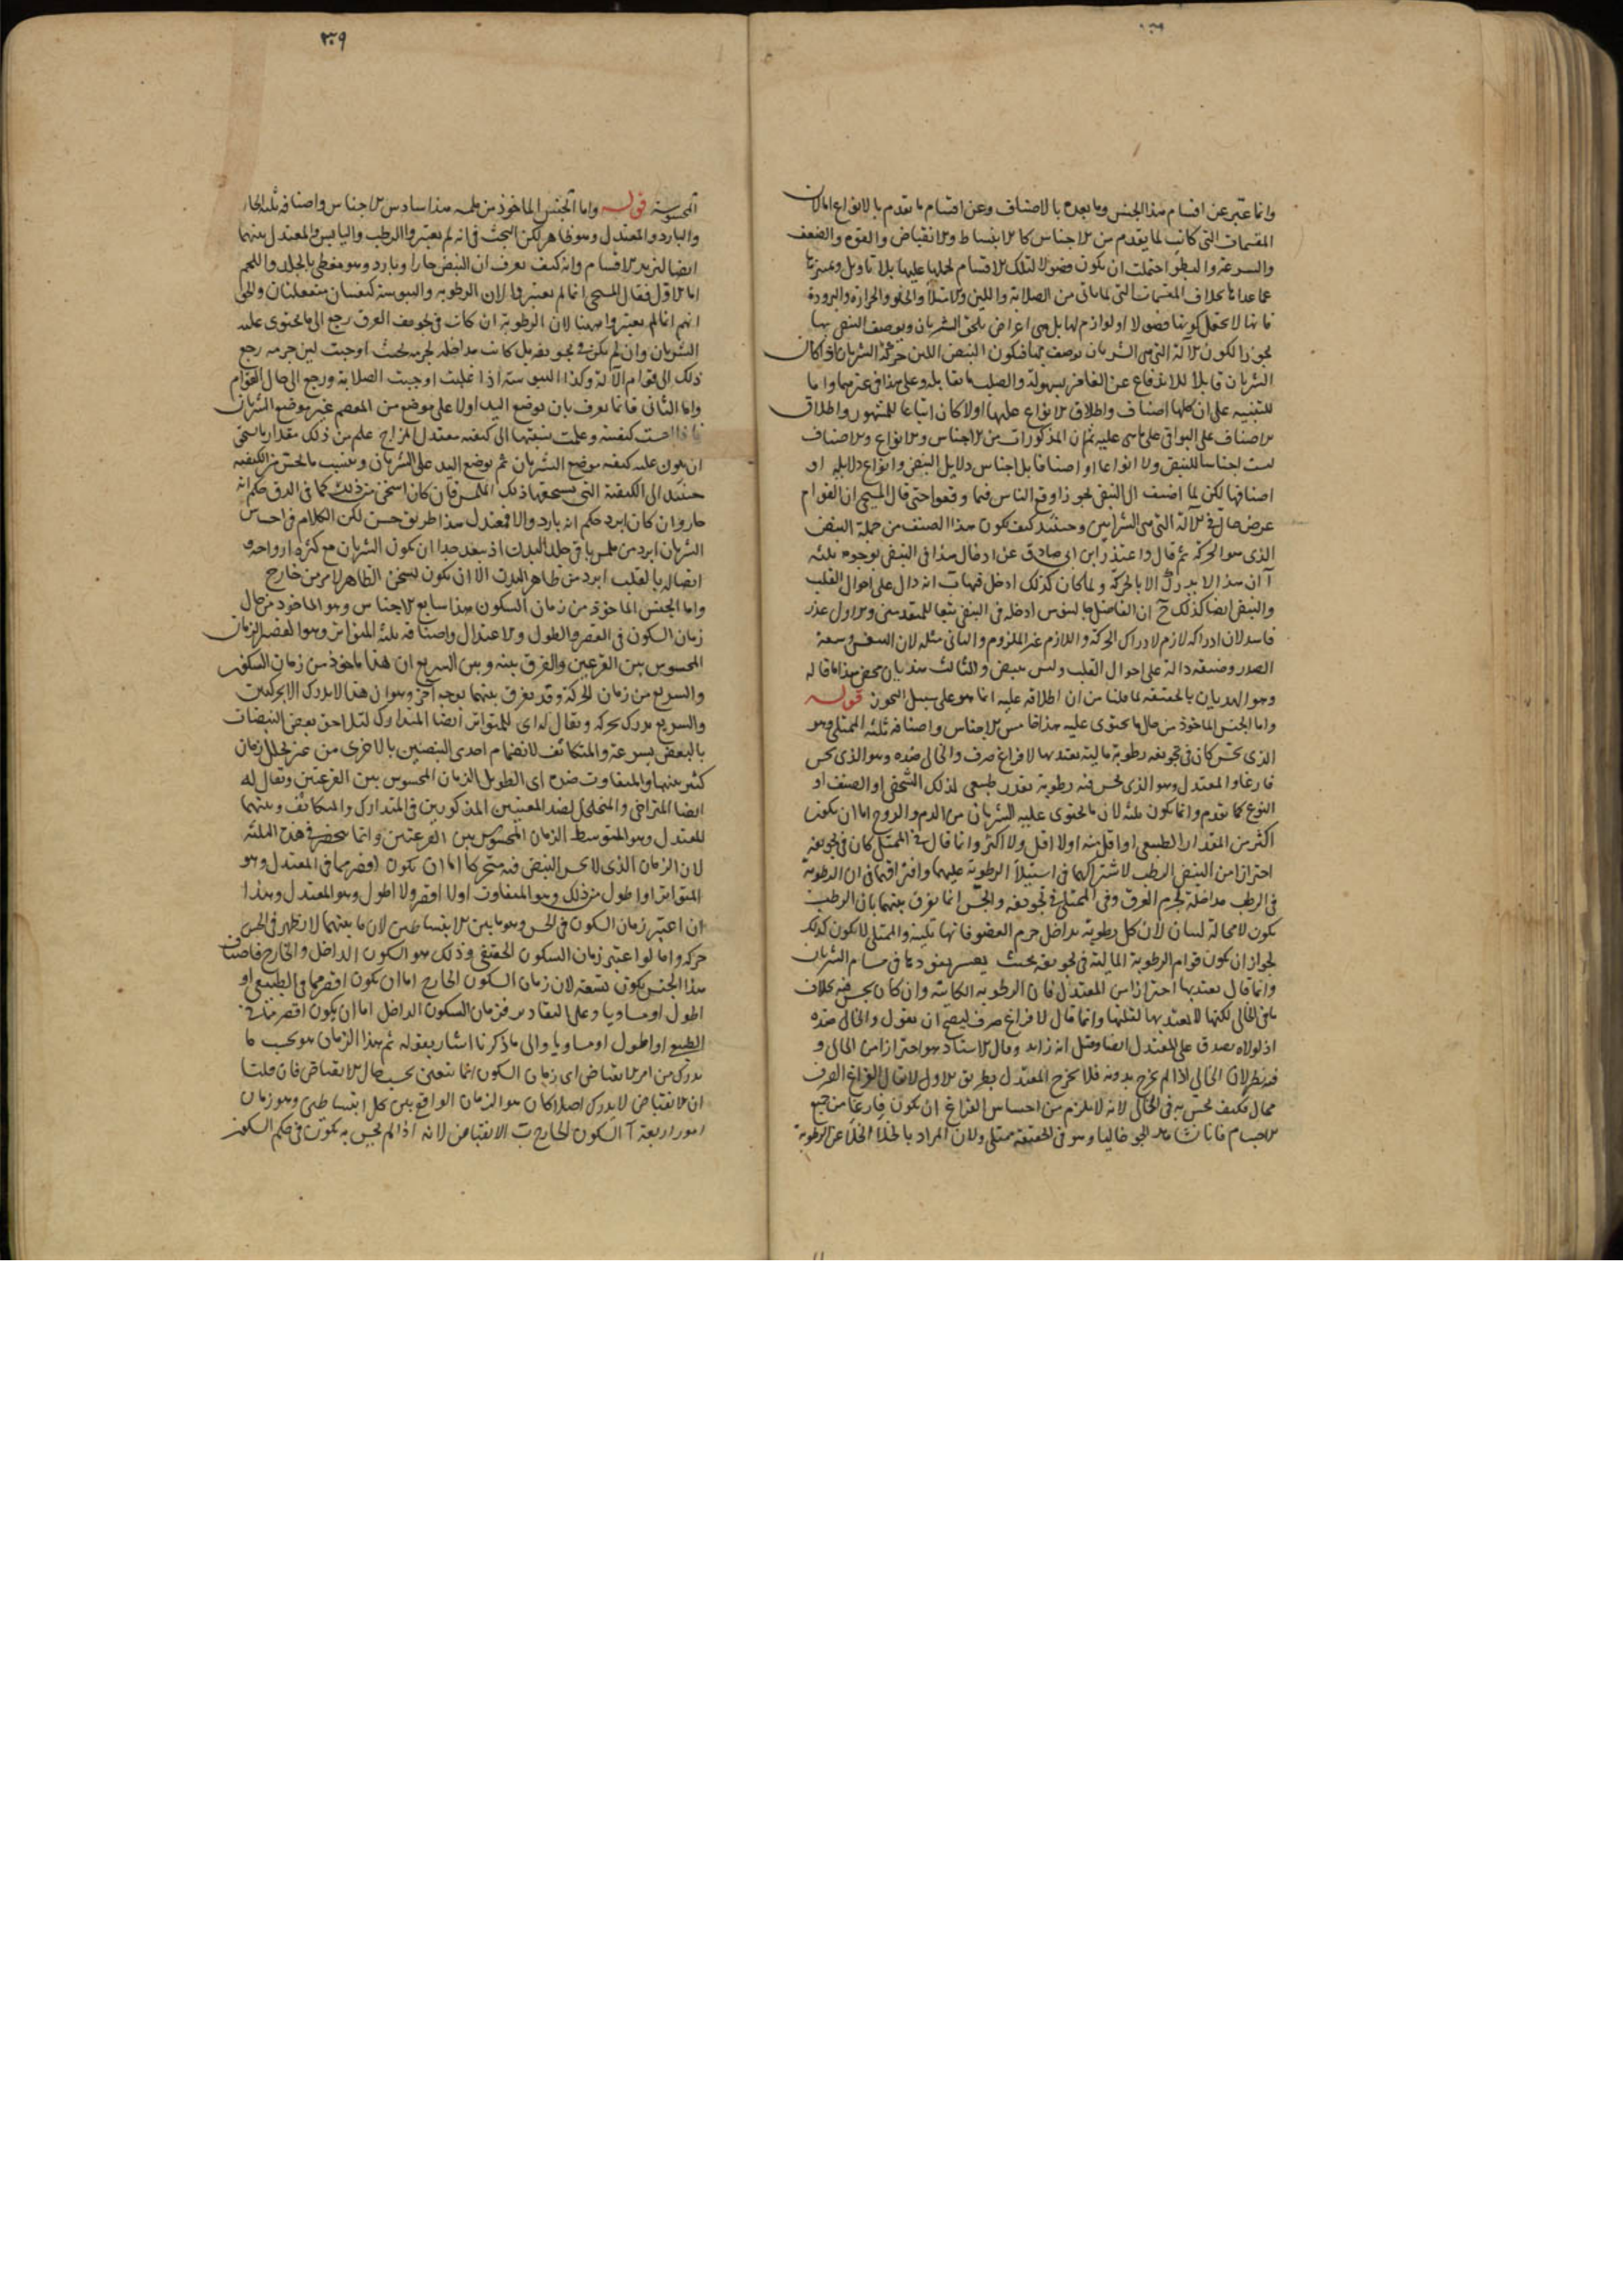 وانما عبر عن اقسام هذا الجنس وما بعده بالاصناف وعن اقسام ما تقدم بالانواع اما لان
المقسمات التي كانت لما يقدم من الاجناس كالانبساط والانقباض والقوة والضعف
والسرعة والبطؤ احتملت ان يكون فصولا لتلك الاقسام لحملها عليها بلا تاويل وتميزها
عما عداها بخلاف المقسمات التي لما ياتي من الصلابة واللين والامتلاء والخلو والحرارة والبرودة
فانها لا يحتمل كونها فصولا او لوازم لها بل هي اعراض يلحق الشريان ويوصف النبض بها
تجوزا لكون الآلة التي هي الشريان توصف بها فيكون النبض اللين حركة الشريان اذا كان
الشريان قابلا للاندفاع عن الغامز بسهولة والصلب ما يقابله وعلى هذا في غيرهما واما
للتنبيه على ان كلها اصناف واطلاق الانواع عليها اولا كان اتباعا للمشهور واطلاق
الاصناف على البواقي على ما هي عليه ثم ان المذكورات من الاجناس والانواع والاصناف
ليست اجناسا للنبض ولا انواعا او اصنافا بل اجناس دلايل النبض وانواع دلايله او
اصنافها لكن لما اضيف الى النبض تجوزا وقع الناس فيما وقعوا حتى قال المسيحي ان القوام
عرض حال في الآلة التي هي الشرايين وحينئذ كيف يكون هذا الصنف من جملة النبض
الذي هو الحركة ثم قال واعتذر ابن ابي صادق عن ادخال هذا في النبض بوجوه ثلثة
آ ان هذا لا يدرك الا بالحركة ولما كان كذلك ادخل فيها ب انه دال على احوال القلب
والنبض ايضا كذلك ج ان الفاضل جالينوس ادخله في النبض تبعا للمتقدمين والاول عذر
فاسد لان ادراكه لازم لادراك الحركة واللازم غير الملزوم والثاني مثله لان النفس وسعة
الصدر وضيقه دالة على احوال القلب وليس بنبض والثالث هذيان محض هذا ما قاله
وهو الهذيان بالحقيقة لما قلنا من ان اطلاقه عليه انما هو على سبيل التجوز قوله
واما الجنس الماخوذ من حال ما يحتوي عليه هذا خامس الاجناس واصنافه ثلثة الممتلي وهو
الذي يحس كان في تجويفه رطوبة مالية يعتد بها لا فراغ صرف والخالي ضده وهو الذي يحس
فارغا والمعتدل وهو الذي يحس فيه رطوبة بقدر طبيعي لذلك الشخص او الصنف او
النوع كما تقدم وانما يكون ثلثة لان ما يحتوي عليه الشريان من الدم والروح اما ان يكون
اكثر من المقدار الطبيعي او اقل منه او لا اقل ولا اكثر وانما قال في الممتلي كان في تجويفه
احترازا من النبض الرطب لاشتراكهما في استيلاء الرطوبة عليهما وافتراقهما في ان الرطوبة
في الرطب مداخلة لجرم العرق وفي الممتلي في تجويفه والحس انما يفرق بينهما بان الرطب
يكون لا محالة لينا لان كل رطوبة يداخل جرم العضو فانها تلينه والممتلي لا يكون كذلك
لجواز ان يكون قوام الرطوبة المالية في تجويفه بحيث يعسر نفوذها في مسام الشريان
وانما قال يعتد بها احترازا من المعتدل فان الرطوبة الكائنة وان كان يحس فيه بخلاف
ما في الخالي لكنها لا يعتد بها لقلتها وانما قال لا فراغ صرف ليصح ان يقول والخالي ضده
اذ لولاه يصدق على المعتدل ايضا وقيل انه زايد وقال الاستاد هو احتراز من الخالي و
فيه نظر لان الخالي اذا لم يخرج بدونه فلا يخرج المعتدل بطريق الاول لا يقال الفراغ الصرف
محال فكيف يحس به في الخالي لانه لا يلزم من احساس الفراغ ان يكون فارغا من جميع
الاجسام فانا نشاهد الجو خاليا وهو في الحقيقة ممتلي ولان المراد بالخلاء الخلاء عن الرطوبة
٣٠٩
المحسوسة قوله واما الجنس الماخوذ من ملمسه هذا سادس الاجناس واصنافه ثلثة الحار
والبارد والمعتدل وهو ظاهر لكن البحث في انه لم يعتبروا الرطب واليابس والمعتدل بينهما
ايضا لتزيد الاقسام وانه كيف يعرف ان النبض حار او بارد وهو مغطى بالجلد واللحم
اما الاول فقال المسيحي انما لم يعتبروا لان الرطوبة واليبوسة كيفيتان منفعلتان والحق
انهم انما لم يعتبروا ههنا لان الرطوبة ان كانت في تجويف العرق رجع الى ما يحتوي عليه
الشريان وان لم يكن في تجويفه بل كانت مداخلة لجرمه بحيث اوجبت لين جرمه رجع
ذلك الى قوام الآلة وكذا اليبوسة اذا غلبت اوجبت الصلابة ورجع الى حال القوام
واما الثاني فانما يعرف بان يوضع اليد اولا على موضع من المعصم غير موضع الشريان
فاذا احست كيفيته وعلمت نسبتها الى كيفية معتدل المزاج علم من ذلك مقدار ما يستحق
ان يكون عليه كيفية موضع الشريان ثم يوضع اليد على الشريان وينسب ما يحس من الكيفية
حينئذ الى الكيفية التي يستحقها ذلك الملمس فان كان اسخن من ذلك كما في الدق حكم انه
حار وان كان ابرد حكم انه بارد والا فمعتدل هذا طريق حسن لكن الكلام في احساس
الشريان ابرد من ملمس باقي جلد البدن اذ يبعد جدا ان يكون الشريان مع كثرة ارواحه و
اتصاله بالقلب ابرد من ظاهر البدن الا ان يكون تسخن الظاهر لامر من خارج
واما الجنس الماخوذ من زمان السكون هذا سابع الاجناس وهو الماخوذ من حال
زمان السكون في القصر والطول والاعتدال واصنافه ثلثة المتواتر وهو القصير الزمان
المحسوس بين القرعين والفرق بينه وبين السريع ان هذا ماخوذ من زمان السكون
والسريع من زمان الحركة وقد يفرق بينهما بوجه آخر وهو ان هذا لا يدرك الا بحركتين
والسريع يدرك بحركة ويقال له اي للمتواتر ايضا المتدارك لتلاحق بعض النبضات
بالبعض بسرعة والمتكاثف لانضمام احدى النبضتين بالاخرى من غير تخلل زمان
كثير بينهما والمتفاوت ضده اي الطويل الزمان المحسوس بين القرعتين ويقال له
ايضا المتراخي والمتخلخل لضد المعنيين المذكورين في المتدارك والمتكاثف وبينهما
المعتدل وهو المتوسط الزمان المحسوس بين القرعتين وانما ينحصر في هذه الثلثة
لان الزمان الذي لا يحس النبض فيه متحركا اما ان يكون اقصر مما في المعتدل وهو
المتواتر او اطول من ذلك وهو المتفاوت او لا اقصر ولا اطول وهو المعتدل وهذا
ان اعتبر زمان السكون في الحس وهو ما بين الانبساطين لان ما بينهما لا يظهر في الحس
حركة واما لو اعتبر زمان السكون الحقيقي وذلك هو السكون الداخل والخارج فاصناف
هذا الجنس يكون تسعة لان زمان السكون الخارج اما ان يكون اقصر مما في الطبيعي او
اطول او مساويا وعلى التقادير فزمان السكون الداخل اما ان يكون اقصر مما في
الطبيعي او اطول او مساويا والى ما ذكرنا اشار بقوله ثم هذا الزمان هو بحسب ما
يدرك من امر الانقباض اي زمان السكون انما يتعين بحسب حال الانقباض فان قلنا
ان الانقباض لا يدرك اصلا كان هو الزمان الواقع بين كل انبساطين وهو زمان
امور اربعة آ السكون الخارج ب الانقباض لانه اذا لم يحس به يكون في حكم السكون